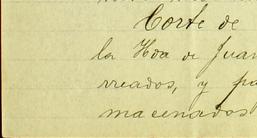 Corte de
la Hda de Juan
rreados, y pa
macenados